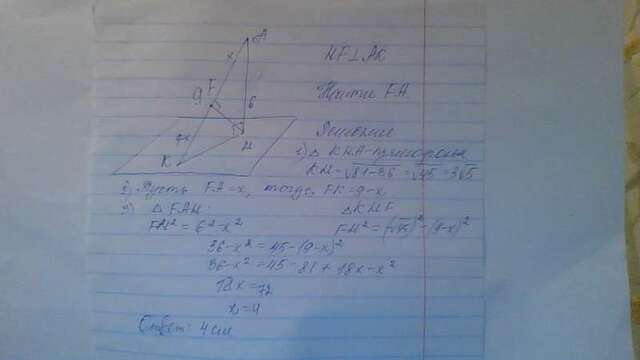 A
x
F
9
6
9-x
K
H
HF⊥AK
Найти FA.
Решение
1) △ KHA - прямоугольн
KH = √81-36 = √45 = 3√5
2) Пусть FA = x, тогда FK = 9-x.
3) △ FAH:
△KHF
FH² = 6² - x²
FH² = (√45)² - (9-x)²
36-x² = 45-(9-x)²
36-x² = 45-81+18x-x²
18x = 72
x = 4
Ответ: 4 см